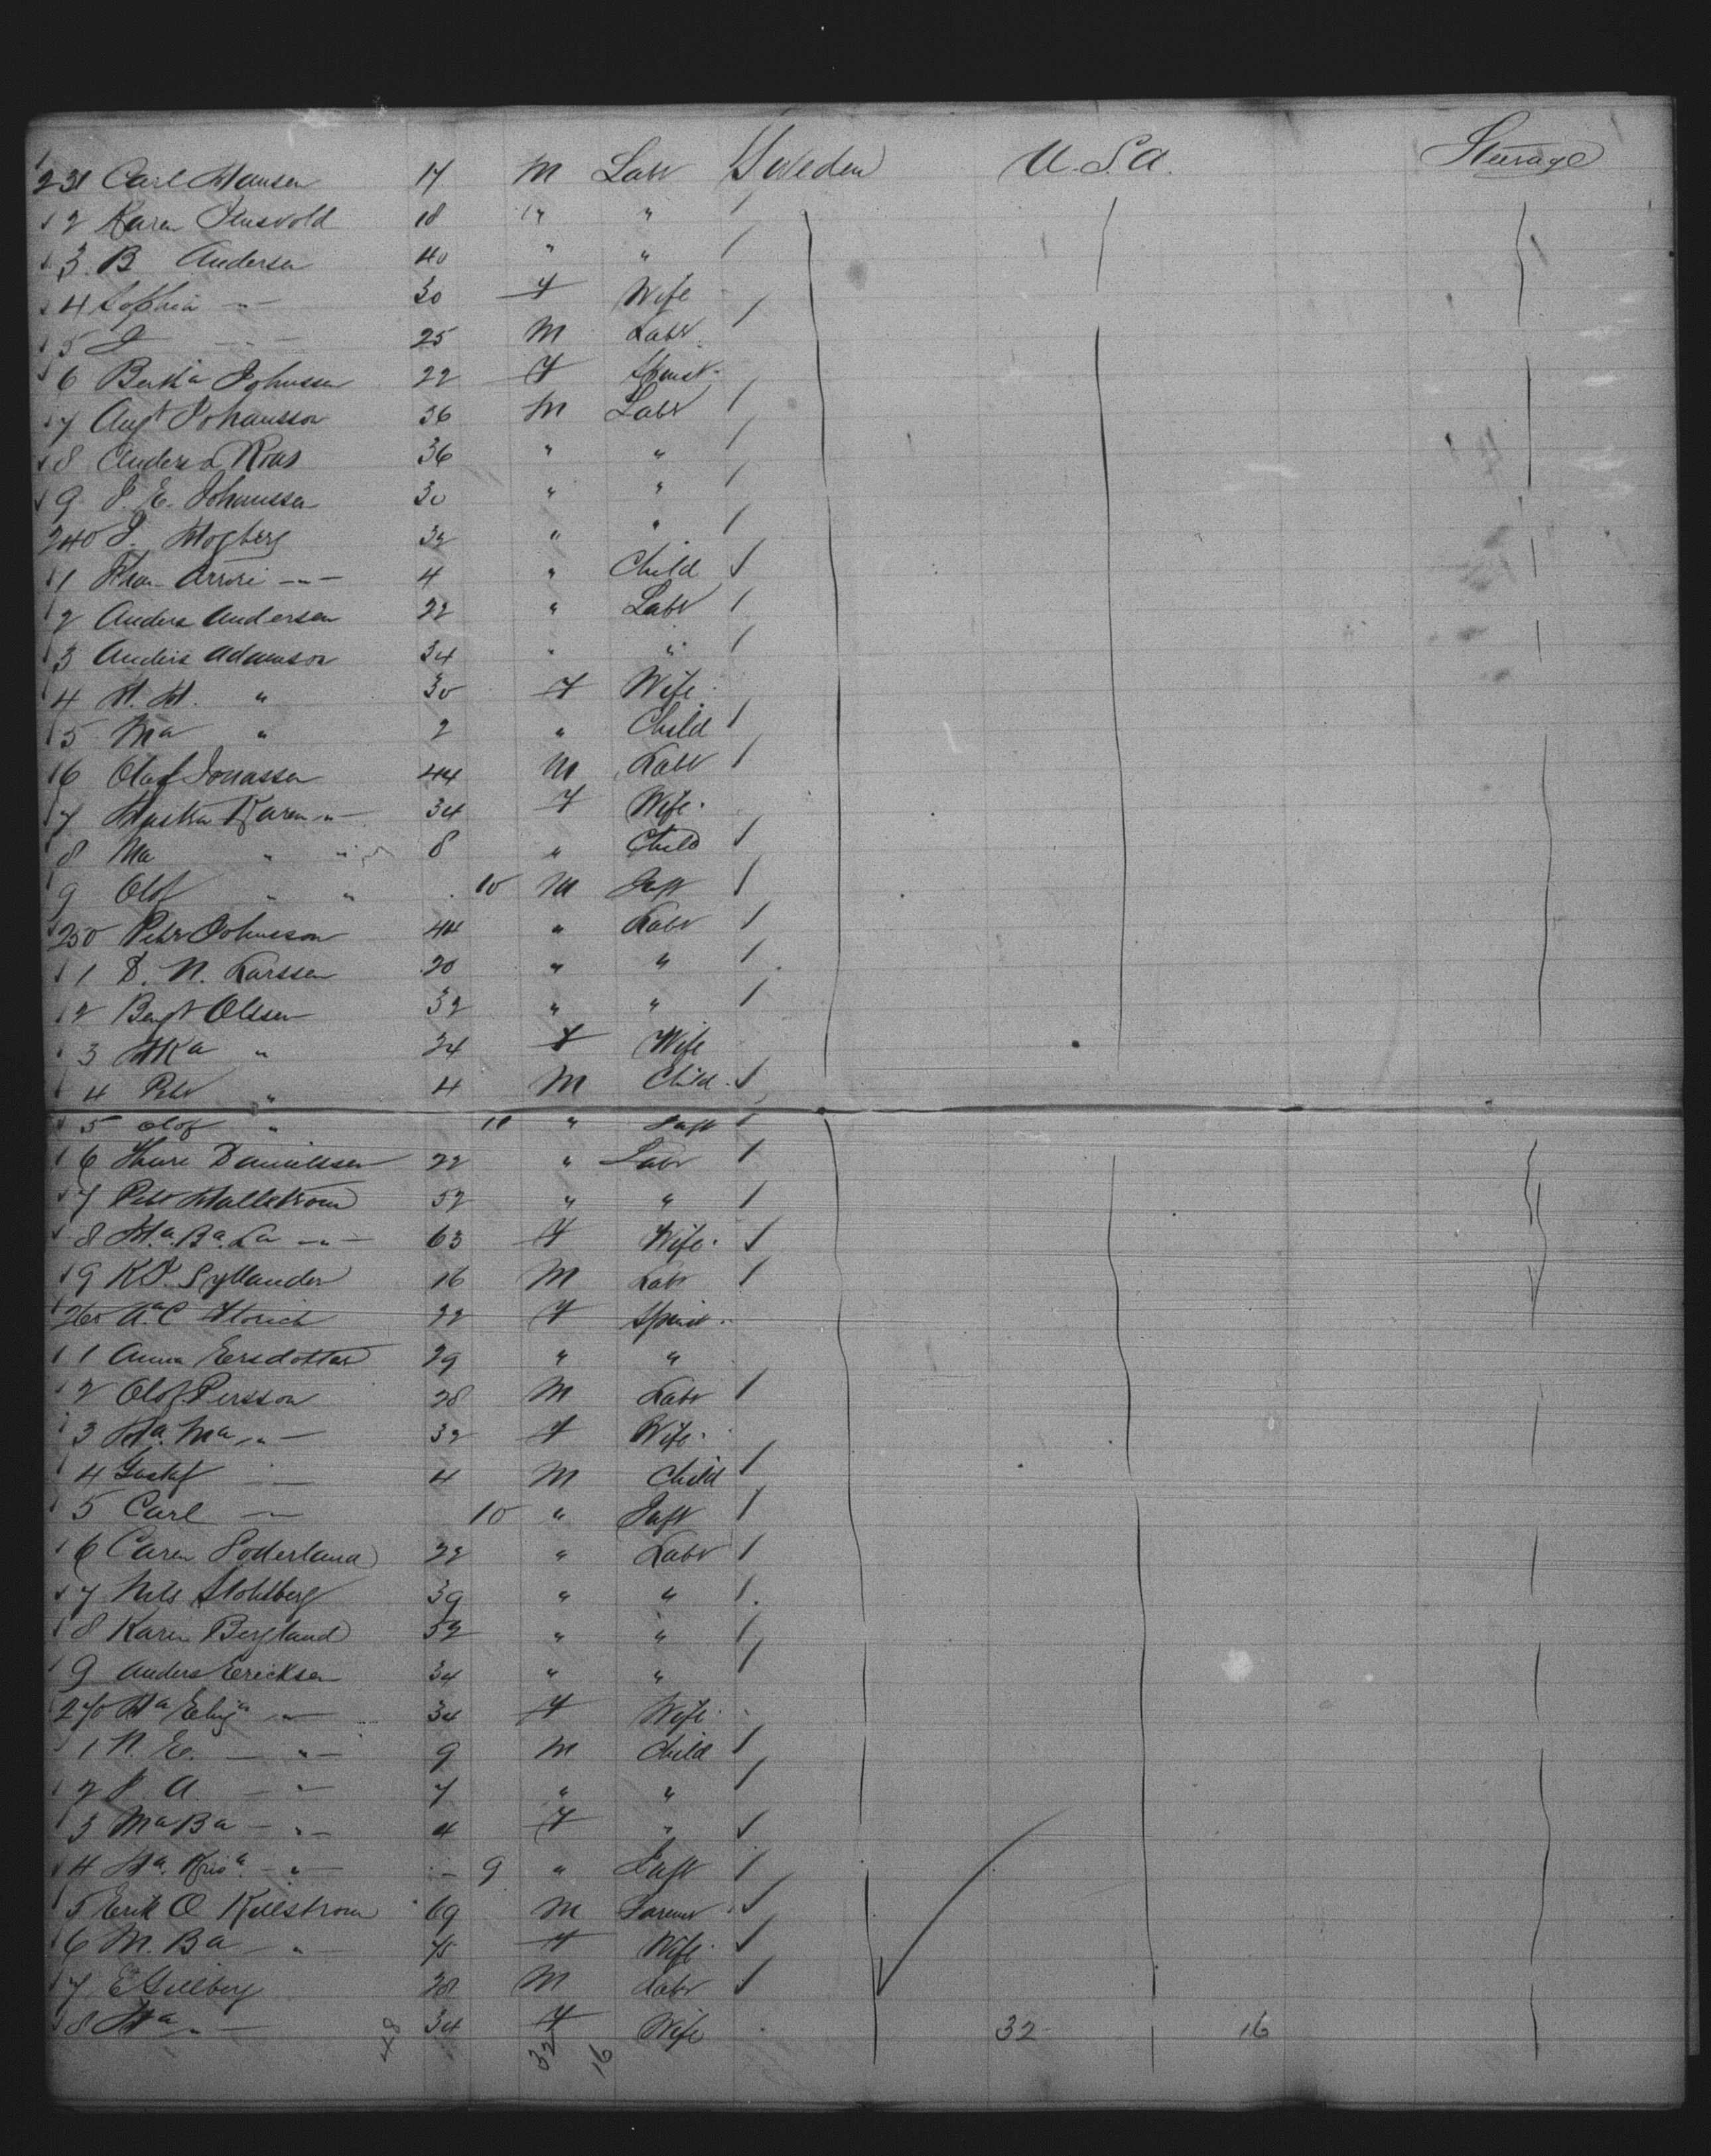 231 Carl Hansen 17 M Labr Sweden U.S.A. Steerage
2 Karen 18 " "
3 B Andersen 40 " "
4 Sophia " 30 F Wife
5 J " 25 M Labr
6 Bertha Johnssen 22 F Spinst.
7 Augt Johansson 36 M Labr
8 Anders Roas 36 " "
9 J. E. Johanssen 30 " "
240 J. Hogberg 32 " "
1 " 4 " Child
2 Anders Andersen 22 " Labr
3 Anders Adamson 34 " "
4 H. H. " 30 F Wife
5 Ma " 2 " Child
6 Olaf Jonassen 44 M Labr
7 Karen " 34 F Wife
8 Ma " " 8 " Child
9 Olof " " 10 M Inft
250 Pehr Johnsson 44 " Labr
1 D. N. Larssen 20 " "
2 Bengt Olssen 32 " "
3 " 34 F Wife
4 Pehr " 4 M Child
5 Olof " 10 " Inft
6 Danielssen 22 " Labr
7 Pehr Hallstrom 52 " "
8 Ha. Ba. La " 63 F Wife
9 K. P. Syllander 16 M Labr
260 Aa. C 22 F Spinst.
1 Anna Ersdotter 29 " "
2 Olof Persson 28 M Labr
3 Ha. Ma " 32 F Wife
4 Gustaf " 4 M Child
5 Carl " 10 " Inft
6 Caren Soderland 22 " Labr
7 Nils Stohlberg 39 " "
8 Karen Bergland 52 " "
9 Anders Ericksen 34 " "
270 Ha " 34 F Wife
1 N. E. " 9 M Child
2 J. A. " 7 " "
3 Ma Ba " 4 F "
4 Ha. " 9 " Inft
5 Erik O Kullstrom 69 M Farmer
6 M. Ba " 75 F Wife
7 E Gullberg 28 M Labr
8 Ha " 34 F Wife 32 16
48 32 16